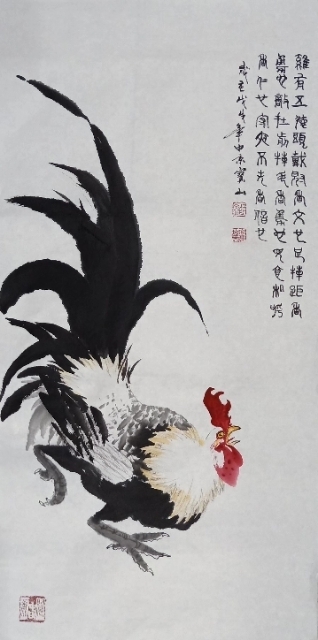 雞有五德頭戴冠者文也足搏距者
武也敵在前者勇也見食相呼
者仁也守夜不失者信也
年中京寶山